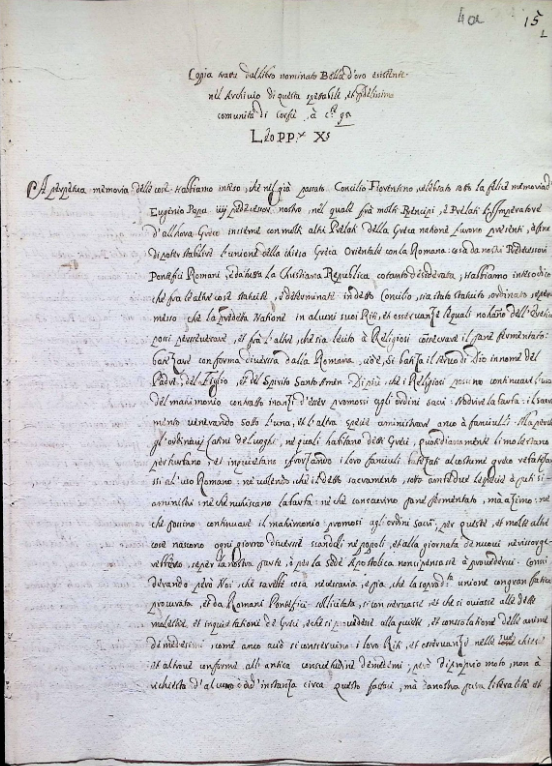 15
Copia tratta dal libro nominato Bolla d'oro esistente
nel Archivio di questa spetabile, et fidelissima
comunità di Corfù à
Leo PP.ˢ Xˢ
A perpetua memoria delle cose. Habbiamo inteso, che nel già passato Concilio Florentino, celebrato sotto la felice memoria d
Eugenio Papa iiij predecessor nostro, nel quale frà molti Prencipi, e Prelati l'Imperatore
d'allhora Greco insieme con molti altri Prelati della Greca natione furono presenti, à fine
di poter stabilire l'unione della chiesa Greca Orientale con la Romana: cosa da nostri Predecessori
Pontefici Romani, e da tutta la Christiana Republica cotanto desiderata; Habbiamo inteso dico
che frà le altre cose statuite, e determinate in detto Concilio, sia stato statuito, ordinato, e per
messo che la predetta Natione in alcuni suoi Riti, et osservanze le quali
possi perseverare, et frà l'altre, che sia lecito à Religiosi consecrare il pane fermentato:
batizare con forma diversa dalla Romana, cioè, Si batiza il servo di Dio in nome del
Padre, del Figlio, et del Spirito Santo Amen. Di più, che i Religiosi possino continuare l'uso
del matrimonio contratto inanzi d'esser promossi agli ordini sacri: Nodrire la barba: il sacra
mento venerando sotto l'una, et l'altra specie aministrare anco à fanciulli. Mà perche
gl'ordinarij Latini de luoghi, ne quali habitano detti Greci, quotidianamente li molestano
perturbano, et inquietano sforzando i loro fanciuli batezati al costume greco rebatizar
si al'uso Romano: ne volendo, che il detto sacramento, sotto ambedue le specie à putti si
aministri: nè che nutriscano la barba: nè che consacrino pane fermentato, mà azimo: nè
che possino continuare il matrimonio promossi agl'ordini sacri; per queste, et molte altre
cose nascono ogni giorno diversi scandoli ne popoli, et alla giornata de nuovi ne risorge
rebbero, se per la nostra parte, ò per la Sede Apostolica non si pensasse à provederci. Consi
derando però Noi, che sarebbe cosa necessaria, e pia, che la sopradᵗᵃ unione con gran fatica
procurata, et da Romani Pontefici sollicitata, si conservasse, et che si oviasse alle dette
molestie, et inquietatione de Greci, e che si provedesse alla quiete, et consolatione delle anime
di medesimi, come anco acciò si conservino i loro Riti, et osservanze nelle sue chiese
et altrove conforme all'antica consuetudine de medemi; però di proprio moto, non à
richiesta d'alcuno ò ad'instanza circa questo factaci, mà da nostra pura liberalità et